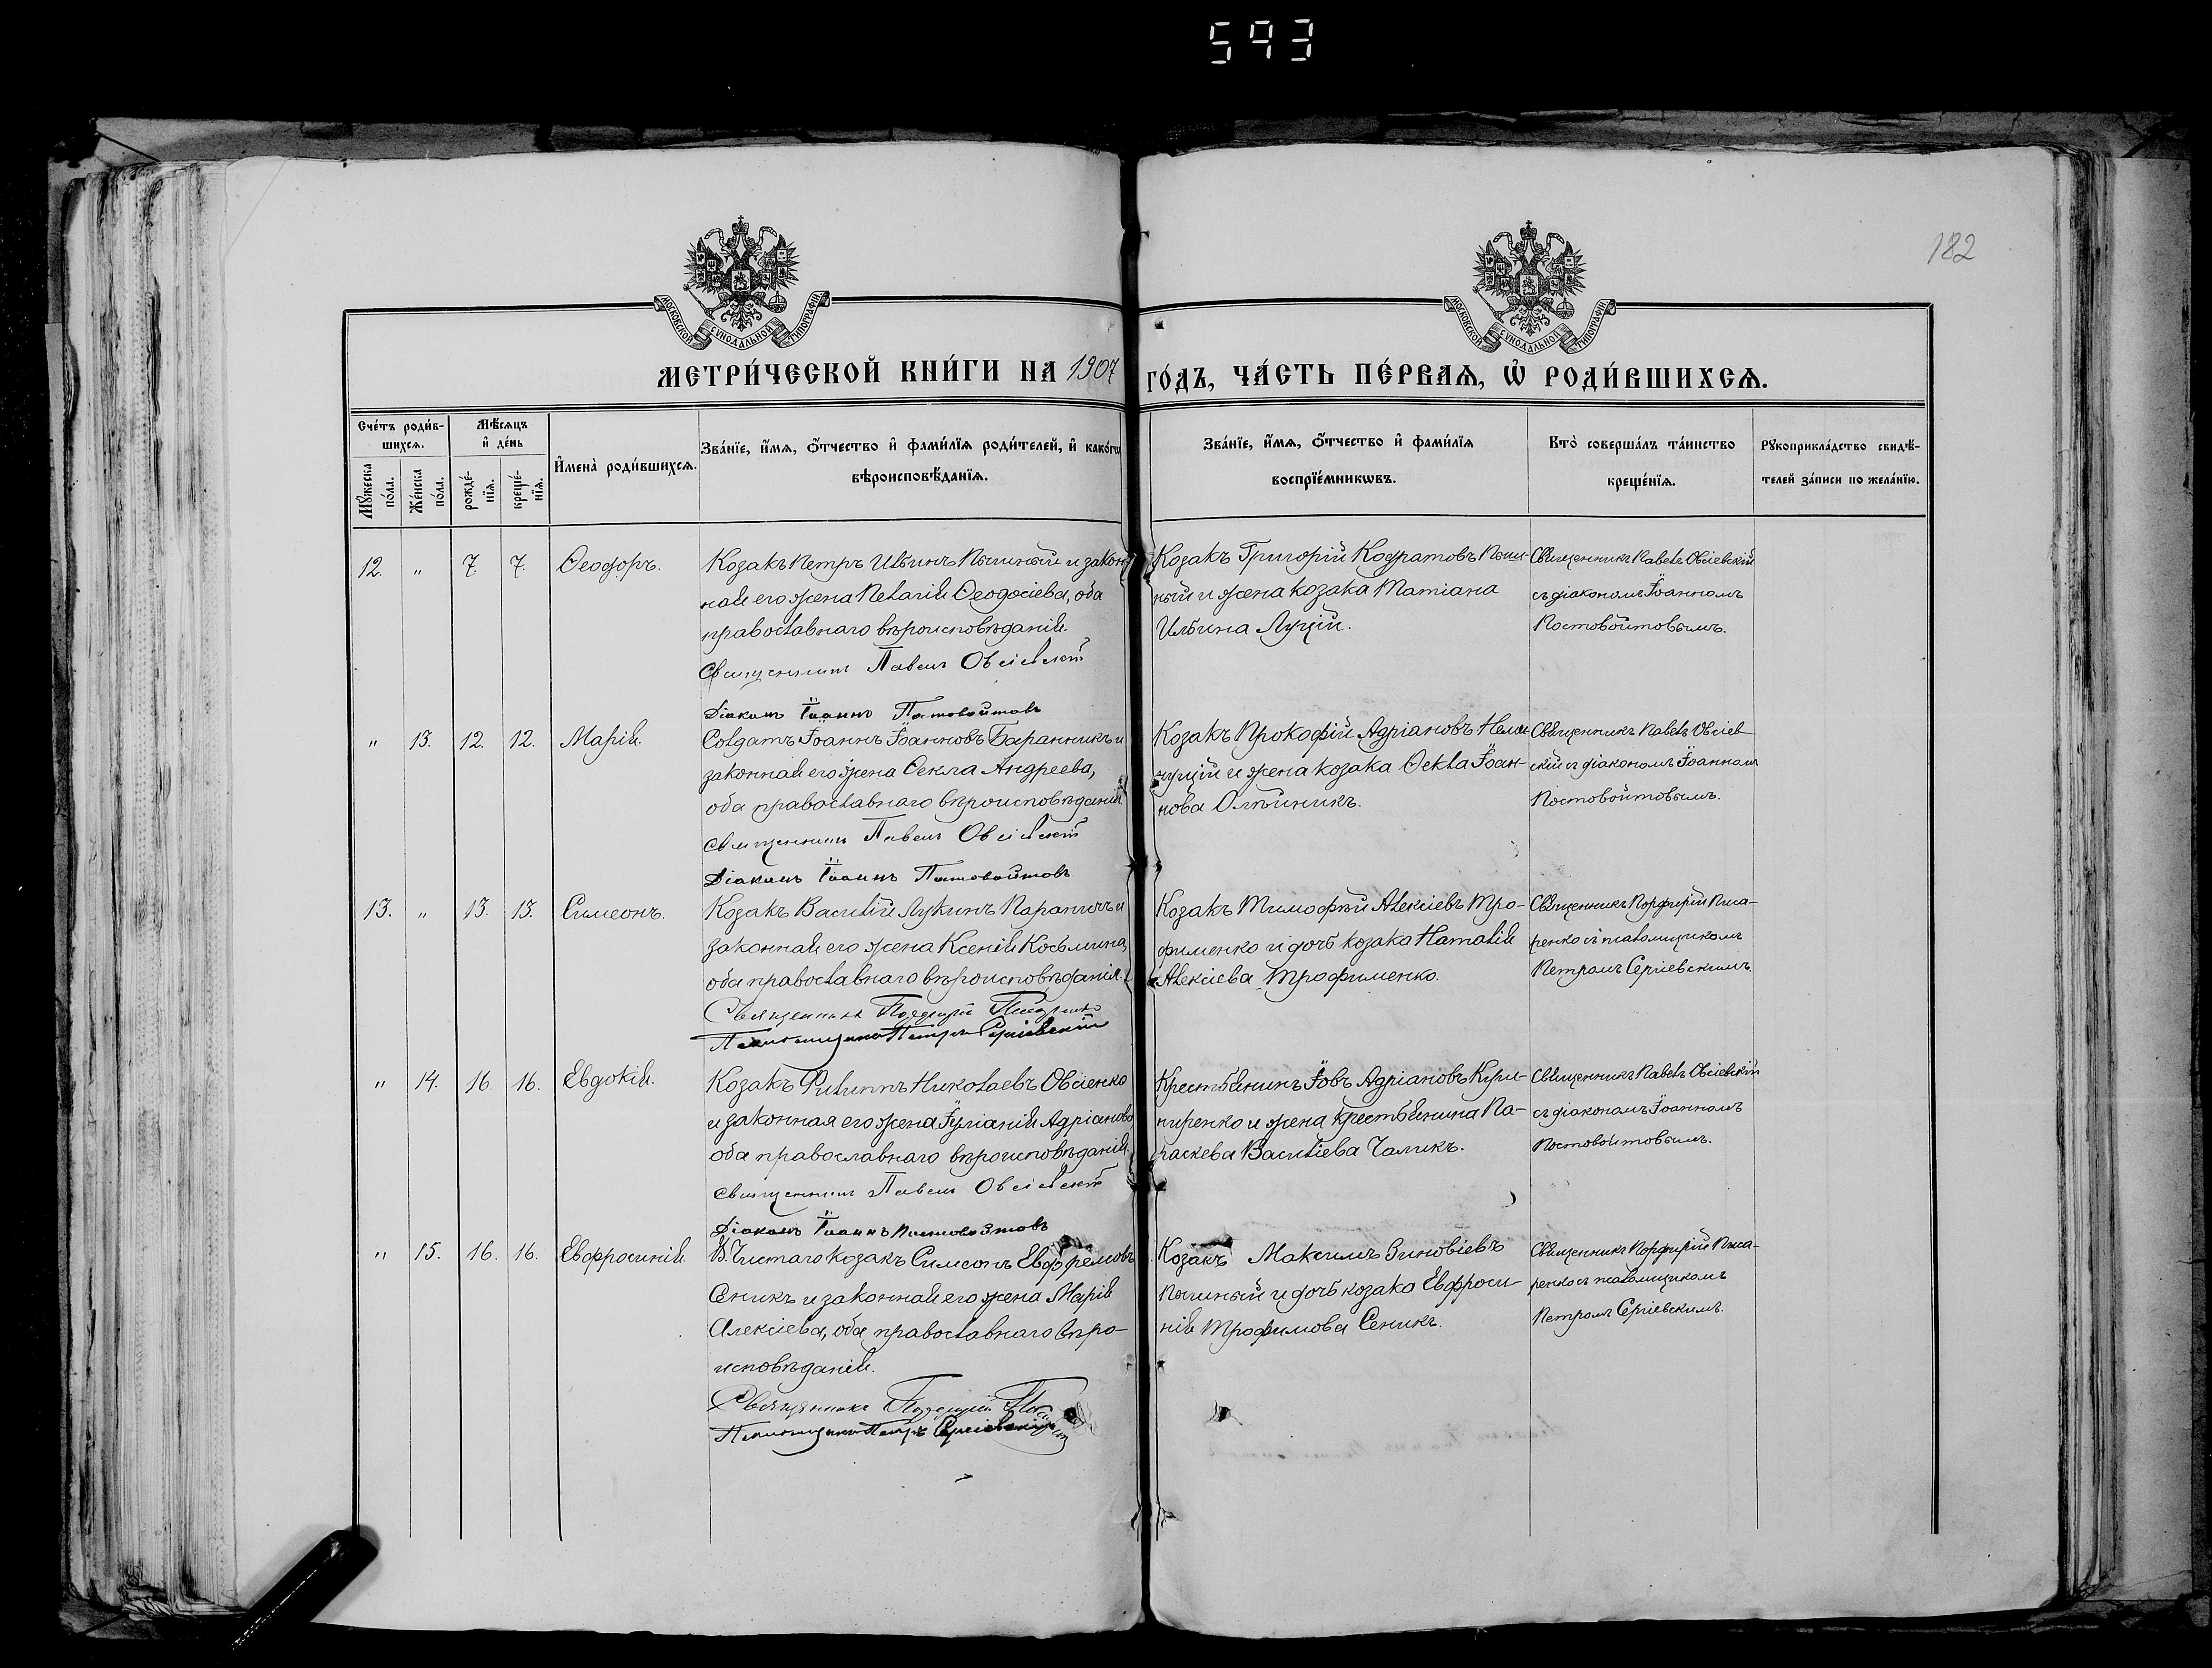 593
182
МОСКОВСКОЙ СУНОДАЛЬНОЙ ТИПОГРАФІИ
МОСКОВСКОЙ СУНОДАЛЬНОЙ ТИПОГРАФІИ
МЕТРИ́ЧЕСКОЙ КНИ́ГИ НА 1907 ГО́ДЪ, ЧА́СТЬ ПЕ́РВАѦ, Ѡ РОДИ́ВШИХСѦ.
Сче́тъ роди́в-
шихсѧ.
Мꙋжеска по́ла.
Же́нска по́ла.
Мѣ́сѧцъ
и҆ де́нь
рожде́-
нїѧ.
креще́-
нїѧ.
И҆мена̀ роди́вшихсѧ.
Зва́нїе, и҆́мѧ, ѻ҆́тчество и҆ фами́лїѧ роди́телей, и҆ како́гѡ
вѣроисповѣ́данїѧ.
Зва́нїе, и҆́мѧ, ѻ҆́тчество и҆ фами́лїѧ
воспрїе́мникѡвъ.
Кто̀ соверша́лъ та́инство
креще́нїѧ.
Рꙋкоприкла́дство свидѣ́-
телей за́писи по жела́нїю.
12. " 7 7. Ѳеодоръ.
Козакъ Петръ Ильинъ Пышный и закон-
ная его жена Пелагія Ѳеодосіева, оба
православнаго вѣроисповѣданія.
Священникъ Павелъ Овсіевскій
Діаконъ Іоаннъ Постовойтовъ
Козакъ Григорій Кодратовъ Пыш-
ный и жена козака Татіана
Ильина Луцій.
Священникъ Павелъ Овсіевскій
съ діакономъ Іоанномъ
Постовойтовымъ.
" 13. 12. 12. Марія.
Солдатъ Іоаннъ Іоанновъ Баранникъ и
законная его жена Ѳекла Андреева,
оба православнаго вѣроисповѣданія.
Священникъ Павелъ Овсіевскій
Діаконъ Іоаннъ Постовойтовъ
Козакъ Прокофій Адріановъ
и жена козака Ѳекла Іоан-
нова Олѣйникъ.
Священникъ Павелъ Овсіев
скій съ діакономъ Іоанномъ
Постовойтовымъ.
13. " 13. 13. Симеонъ.
Козакъ Василій Лукинъ и
законная его жена Ксенія Косьмина,
оба православнаго вѣроисповѣданія.
Священникъ Порфирій Писаренко
Псаломщикъ Петръ Сергіевскій
Козакъ Тимофѣй Алексіевъ Тро-
фименко и дочь козака Наталія
Алексіева Трофименко.
Священникъ Порфирій Писа-
ренко съ псаломщикомъ
Петромъ Сергіевскимъ.
" 14. 16. 16. Евдокія.
Козакъ Филиппъ Николаевъ Овсіенко
и законная его жена Іуліанія Адріанова
оба православнаго вѣроисповѣданія.
Священникъ Павелъ Овсіевскій
Діаконъ Іоаннъ Постовойтовъ
Крестьянинъ Іовъ Адріановъ Кури-
ренко и жена крестьянина Па-
раскева Василіева Чаликъ.
Священникъ Павелъ Овсіевскій
съ діакономъ Іоанномъ
Постовойтовымъ.
" 15. 16. 16. Евфросинія
Х. Чистаго козакъ Симеонъ Евфремовъ
Сеникъ и законная его жена Марія
Алексіева, оба православнаго вѣро-
исповѣданія.
Священникъ Порфирій
Псаломщикъ Петръ Сергіевскій
Козакъ Максимъ Зиновіевъ
Пышный и дочь козака Евфроси-
нія Трофимова Сеникъ.
Священникъ Порфирій Писа-
ренко съ псаломщикомъ
Петромъ Сергіевскимъ.